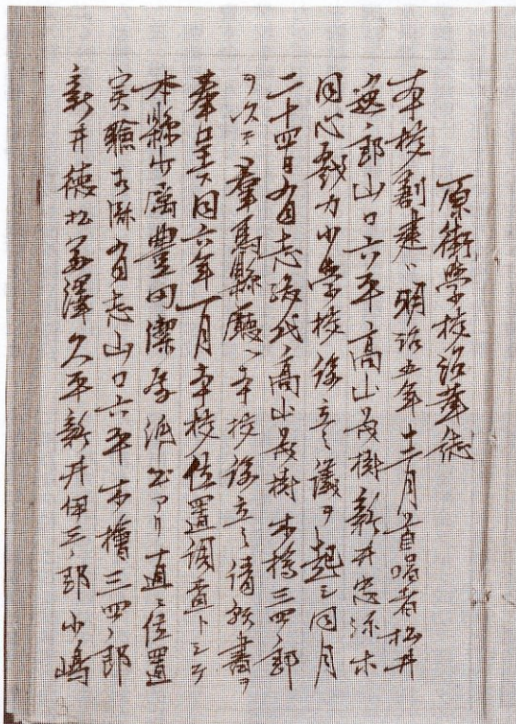 原街学校沿革誌
本校創建ハ明治五年十二月首唱者松井
郎山口六平高山長樹新井忠弥木
同心戮力小学校設立之議ヲ起シ同月
二十四日有志総代高山長樹木檜三四郎
ヲ以テ羣馬縣廳ヘ本校設立之請願書ヲ
奉呈ス同六年一月本校位置調査トシテ
本縣少属豊田潔出アリ直ニ位置
実驗有志山口六平木檜三四郎
新井徳松澤久平新井伊三郎小嶋